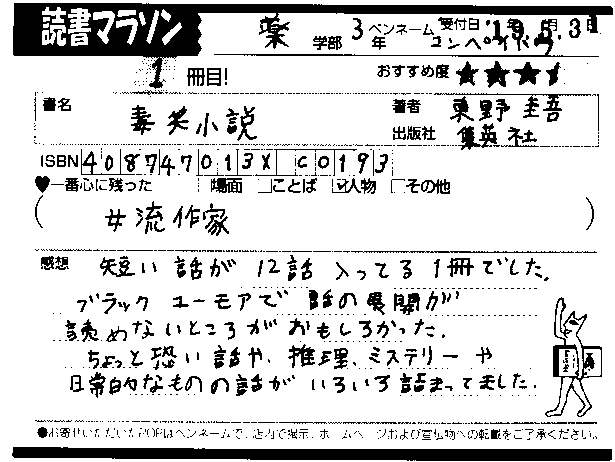 読書マラソン
薬 学部 3年 ペンネーム コンペイトウ 受付日 '19年5月31日
1 冊目!
おすすめ度 ★★★
書名 毒笑小説
著者 東野圭吾
出版社 集英社
ISBN 408747013X C0193
♥一番心に残った □場面 □ことば ☑人物 □その他
( 女流作家 )
感想 短い話が12話入ってる1冊でした。
ブラックユーモアで話の展開が
読めないところがおもしろかった。
ちょっと恐い話や、推理、ミステリーや
日常的なものの話がいろいろ詰まってました。
●お寄せいただいたPOPはペンネームで、店内で掲示、ホームページおよび宣伝物への転載をご了承ください。